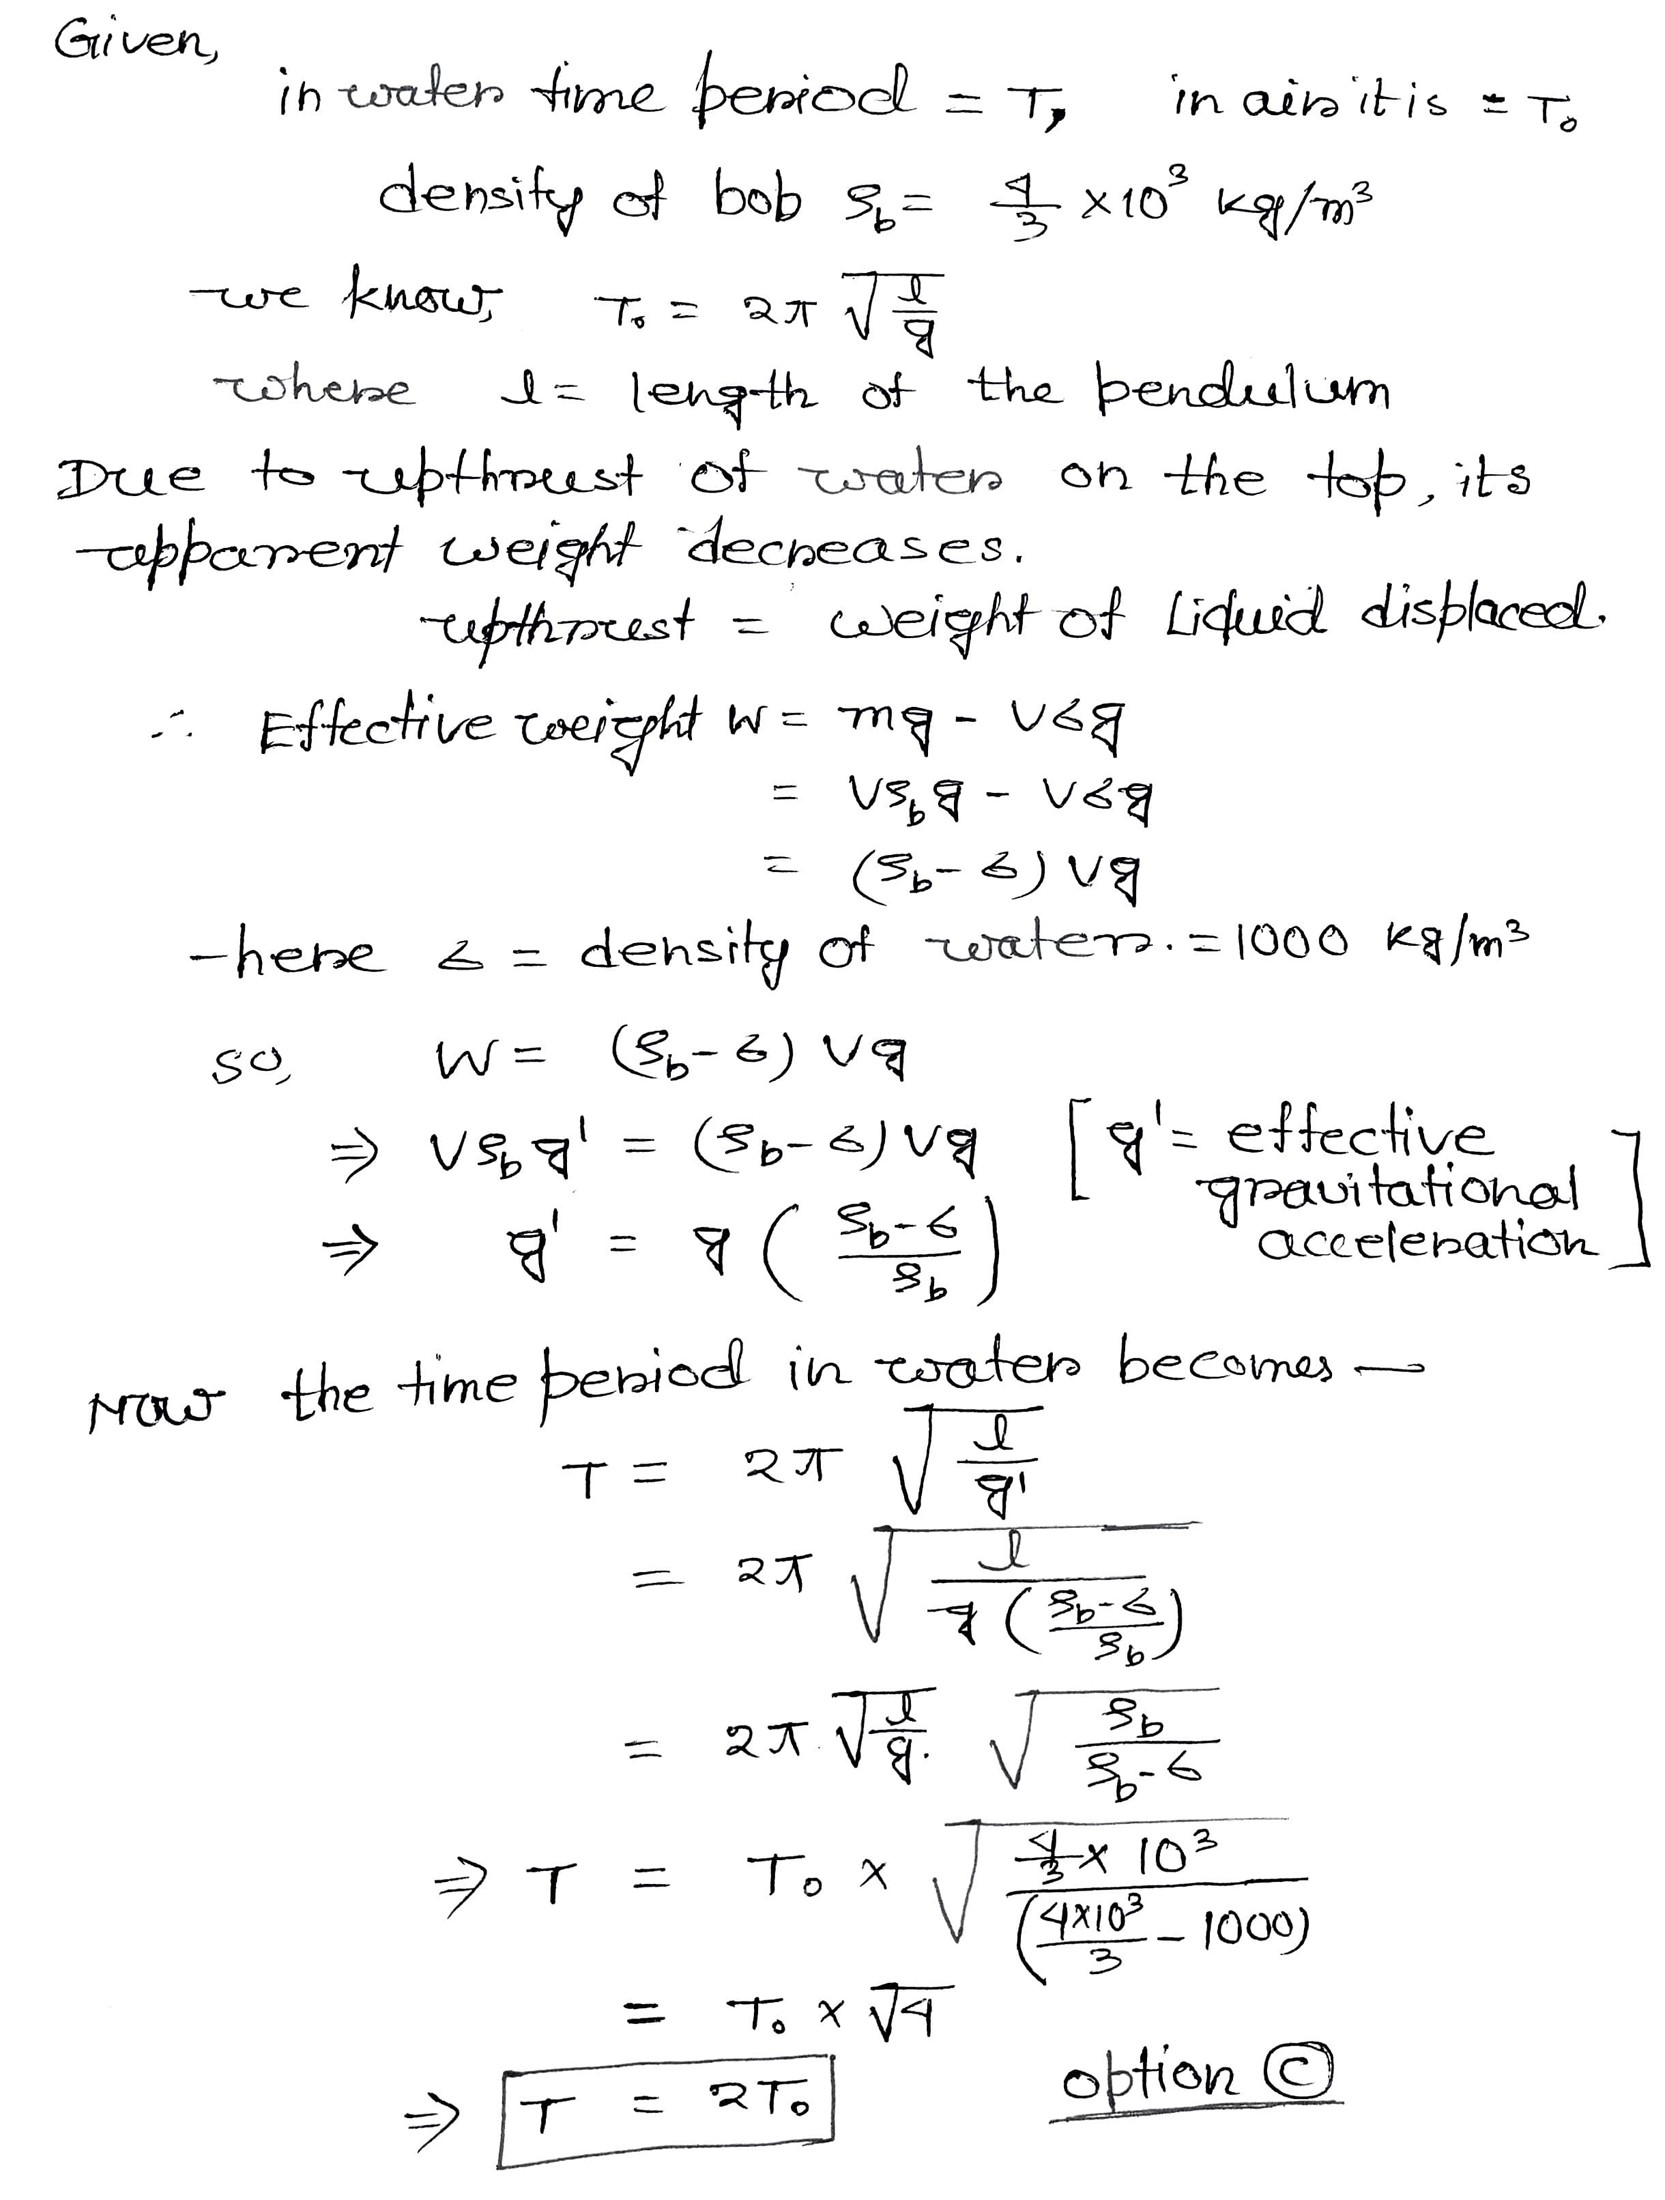 Given,
in water time period = T, in air it is = T₀
density of bob ρ_b = 4/3 × 10³ kg/m³
we know, T₀ = 2π √(l/g)
where l = length of the pendulum
Due to upthrust of water on the top, its
apparent weight decreases.
upthrust = weight of Liquid displaced.
∴ Effective weight W = mg - Vσg
= Vρ_b g - Vσg
= (ρ_b - σ) Vg
here σ = density of water. = 1000 kg/m³
so, W = (ρ_b - σ) Vg
⇒ Vρ_b g' = (ρ_b - σ) Vg [g' = effective
gravitational
acceleration]
⇒ g' = g ((ρ_b - σ)/ρ_b)
Now the time period in water becomes —
T = 2π √(l/g')
= 2π √(l/(g((ρ_b - σ)/ρ_b)))
= 2π. √(l/g). √(ρ_b/(ρ_b - σ))
⇒ T = T₀ × √((4/3 × 10³)/((4×10³)/3 - 1000))
= T₀ × √4
⇒ T = 2T₀ option Ⓒ